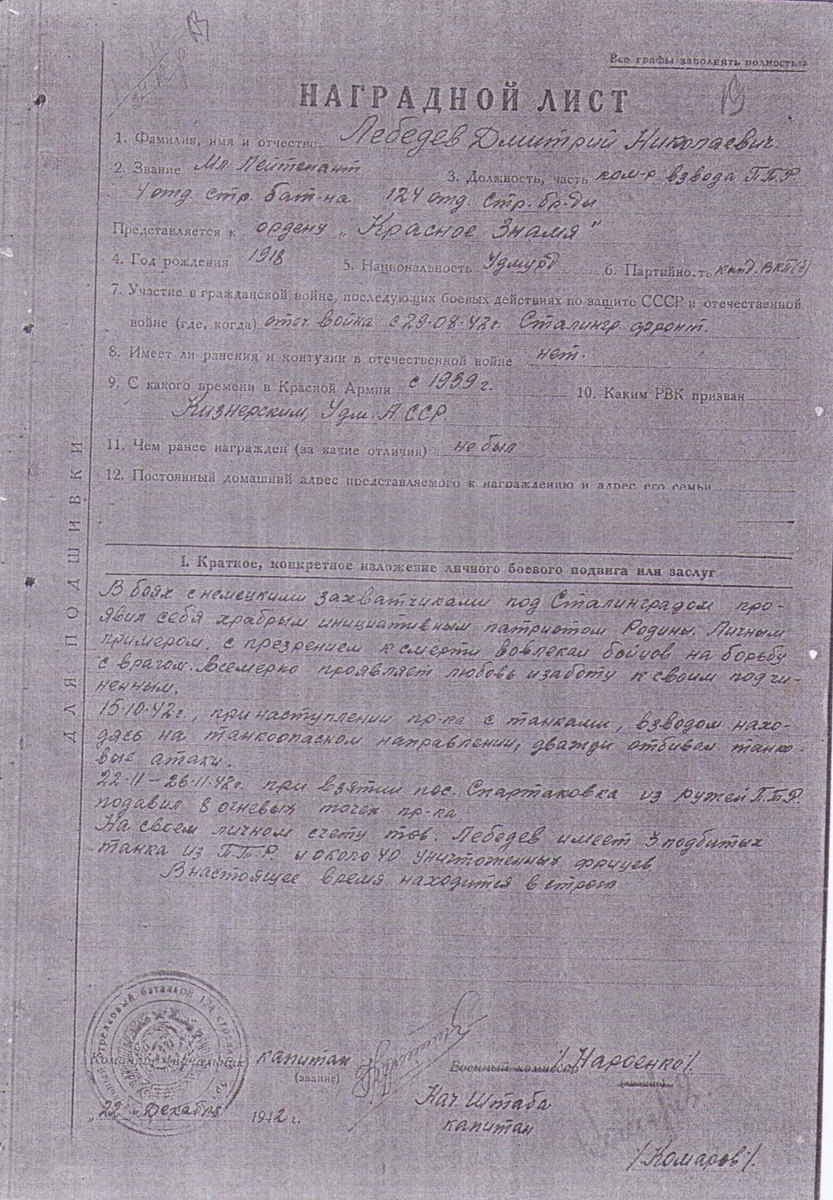 Все графы заполнять полностью
НАГРАДНОЙ ЛИСТ
1. Фамилия, имя и отчество Лебедев Дмитрий Николаевич.
2. Звание Мл. Лейтенант 3. Должность, часть ком-р взвода П.Т.Р
4 отд. стр. бат-на 124 отд. стр. бр-ды
Представляется к ордену „Красное Знамя"
4. Год рождения 1918 5. Национальность Удмурд 6. Партийность канд. ВКП(б)
7. Участие в гражданской войне, последующих боевых действиях по защите СССР и отечественной
войне (где, когда) отеч. война с 29-08-42г. Сталингр. фронт.
8. Имеет ли ранения и контузии в отечественной войне нет.
9. С какого времени в Красной Армии с 1939 г. 10. Каким РВК призван
Кизнерским, Удм. АССР.
11. Чем ранее награжден (за какие отличия) не был
12. Постоянный домашний адрес представляемого к награждению и адрес его семьи
ДЛЯ ПОДШИВКИ
I. Краткое, конкретное изложение личного боевого подвига или заслуг
В боях с немецкими захватчиками под Сталинградом про-
явил себя храбрым инициативным патриотом Родины. Личным
примером, с презрением к смерти вовлекал бойцов на борьбу
с врагом. Всемерно проявляет любовь и заботу к своим подчи-
ненным.
15-10-42г., при наступлении пр-ка с танками, взводом нахо-
дясь на танкоопасном направлении, дважды отбивал танко-
вые атаки.
22-11-26-11-42г. при взятии пос. Спартаковка из ружей П.Т.Р.
подавил 8 огневых точек пр-ка
На своем личном счету тов. Лебедев имеет 3 подбитых
танка из П.Т.Р. и около 40 уничтоженных фрицев.
В настоящее время находится в строю
стрелковый батальон 124
Командир начальник капитан
(звание)
Военный комиссар /Нароенко/.
(звание)
„22" Декабря 1942 г.
Нач. Штаба
капитан
/Комаров/.